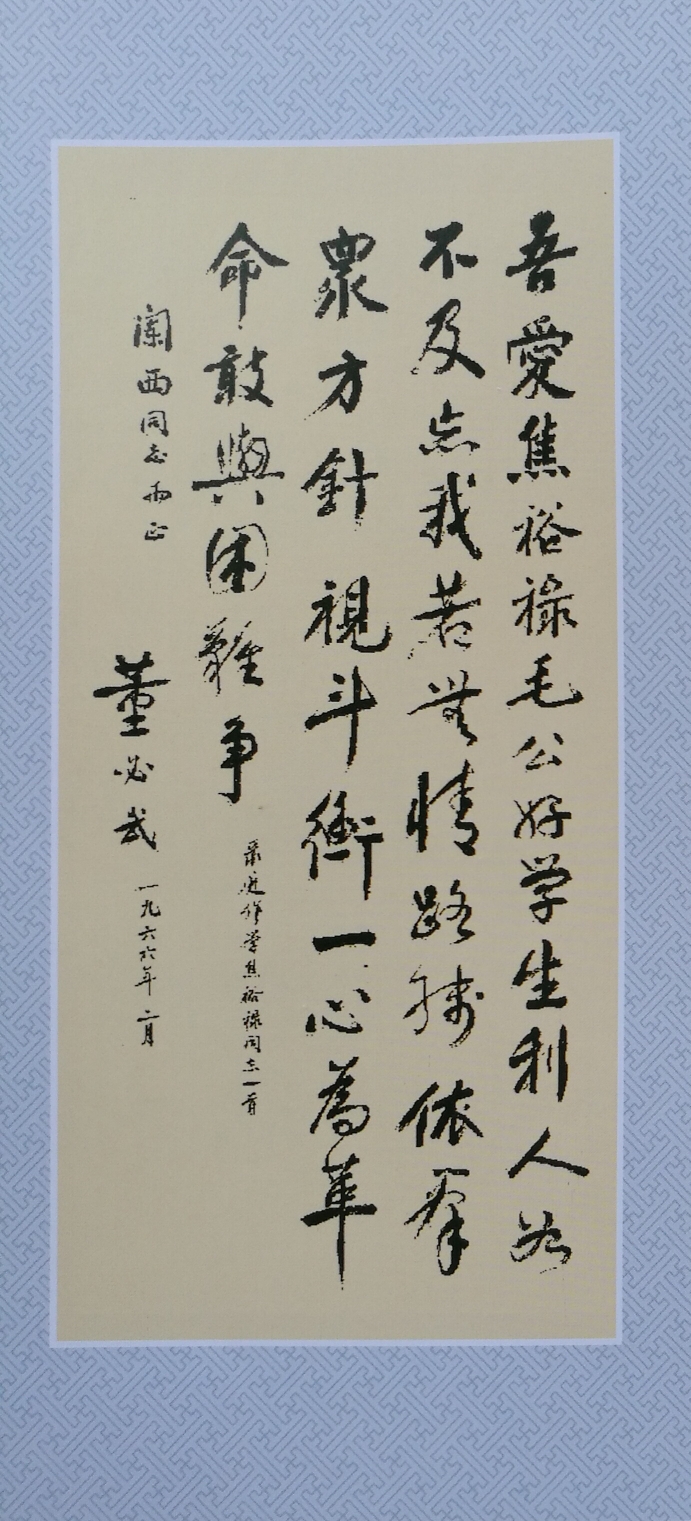 吾愛焦裕禄毛公好学生利人如
不及忘我若無情路綫依羣
衆方針視斗衡一心為革
命敢與困難争
作学焦裕禄同志一首
闌西同志两正
董必武 一九六六年二月